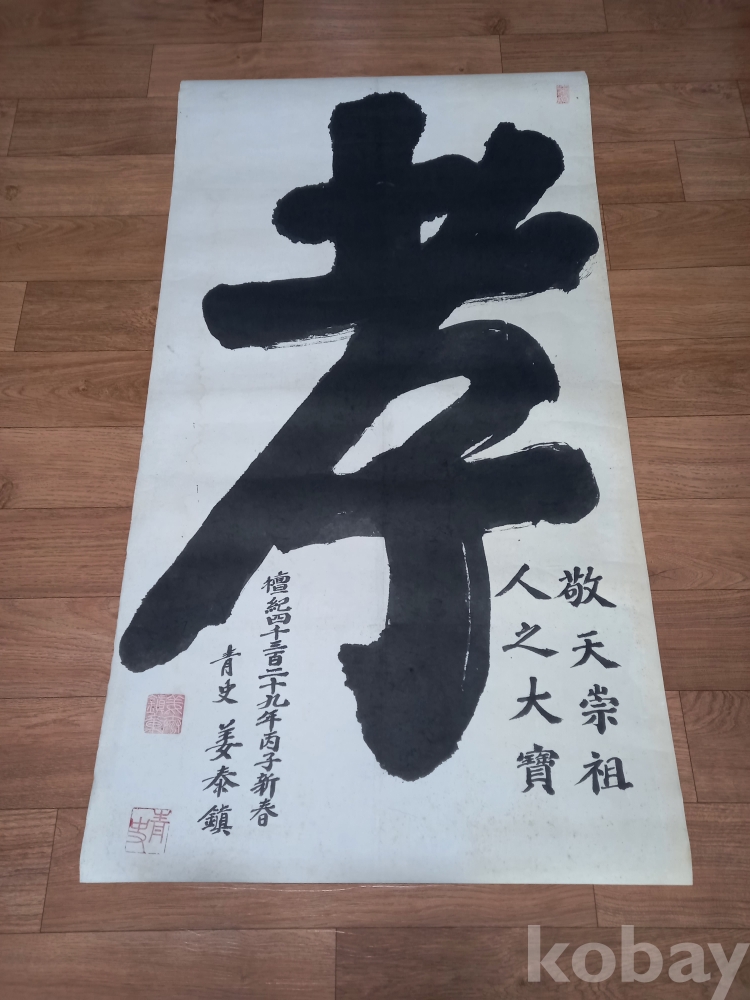 孝
敬天崇祖
人之大寶
檀紀四千三百二十九年丙子新春
青史 姜泰鎮
青史
kobay